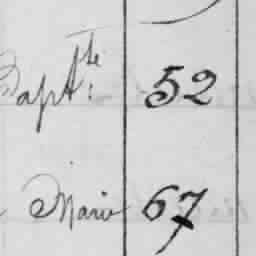 Bapt^te: 52
Marie 67